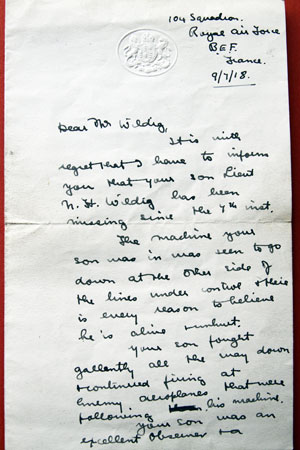 104 Squadron.
Royal Air Force
B.E.F.
France.
9/7/18.
Dear Mr Wildig,
It is with
regret that I have to inform
you that your son Lieut
N. H. Wildig has been
missing since the 7th inst.
The machine your
son was in was seen to go
down at the other side of
the lines under control & there
is every reason to believe
he is alive & unhurt.
Your son fought
gallently all the way down
& continued firing at
Enemy aeroplanes that were
following his machine.
Your son was an
excellent observer & a